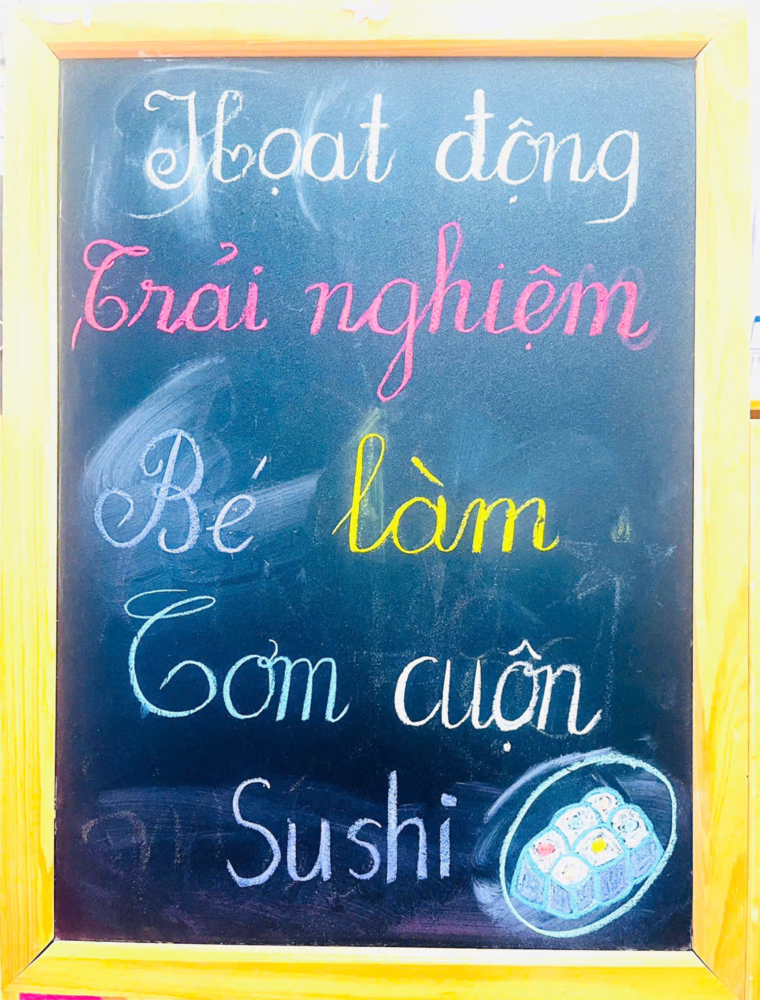 Hoạt động
Trải nghiệm
Bé làm
Cơm cuộn
Sushi